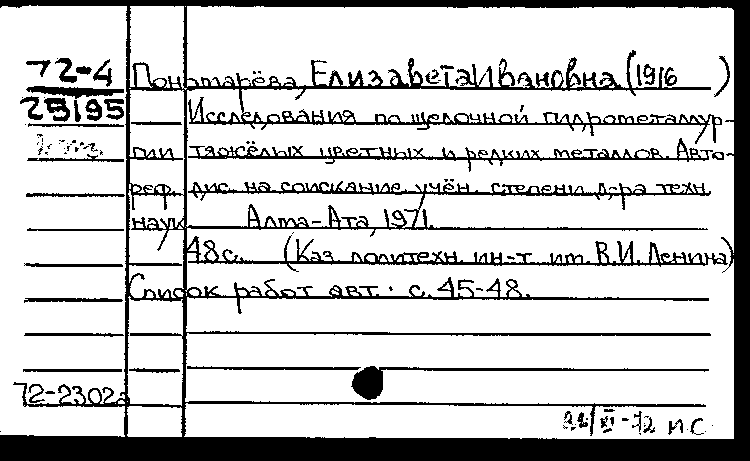 72-4 Пономарёва, Елизавета Ивановна (1916 )
25195 Исследования по щелочной гидрометаллур-
гии тяжёлых цветных и редких металлов. Авто-
реф. дис. на соискание учён. степени д-ра техн.
наук Алма-Ата, 1971.
48 с. (Каз. политехн. ин-т им. В.И. Ленина)
Список работ авт.: с. 45-48.
72-2302а
XI-72 И С